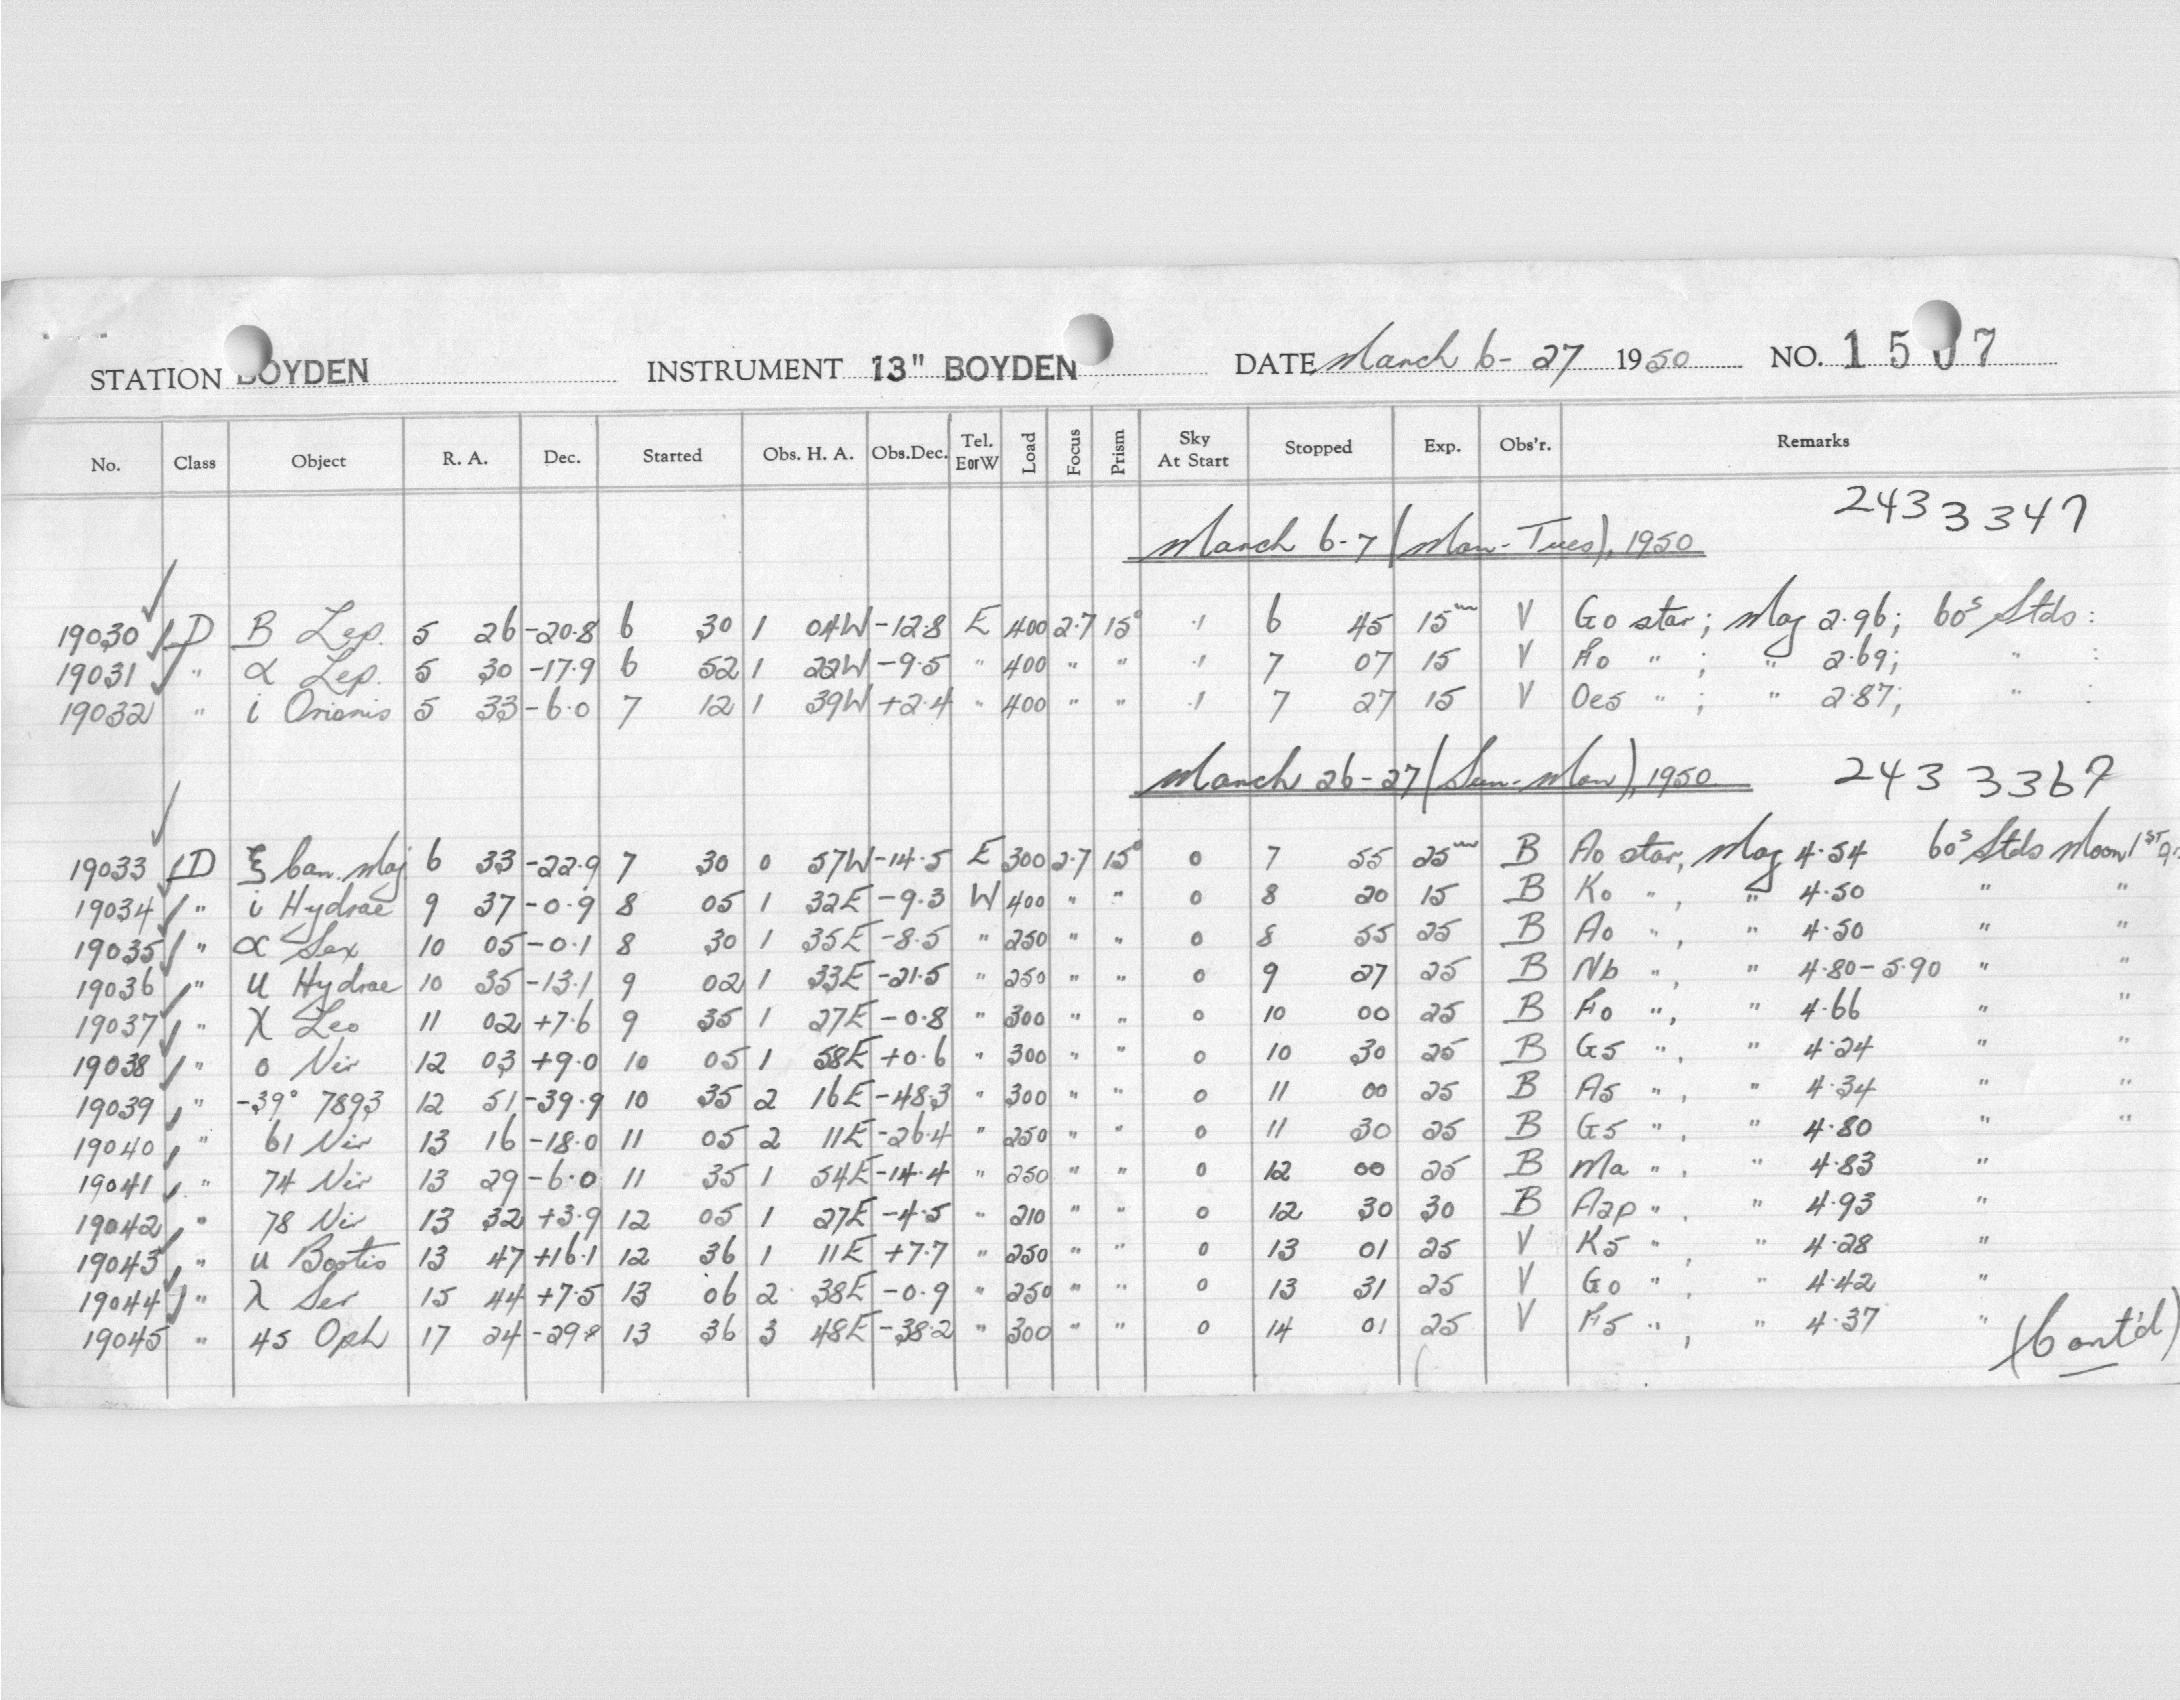 STATION BOYDEN INSTRUMENT 13" BOYDEN DATE March 6-27 1950 NO. 1507
No. Class Object R. A. Dec. Started Obs. H. A. Obs.Dec. Tel. EorW Load Focus Prism Sky At Start Stopped Exp. Obs'r. Remarks
2433347
March 6-7 (Mon-Tues), 1950
19030 D B Lep. 5 26 -20.8 6 30 1 04W -12.8 E 400 2.7 15° .1 6 45 15m V Go star; Mag 2.96; 60s Stds:
19031 " α Lep. 5 30 -17.9 6 52 1 22W -9.5 " 400 " " .1 7 07 15 V Fo " ; " 2.69; " :
19032 " i Orionis 5 33 -6.0 7 12 1 39W +2.4 " 400 " " .1 7 27 15 V Oe5 " ; " 2.87; " :
March 26-27 (Sun-Mon), 1950 2433367
19033 D ξ Can. Maj 6 33 -22.9 7 30 0 57W -14.5 E 300 2.7 15° 0 7 55 25m B Ao star, Mag 4.54 60s Stds Moon 1st Q.
19034 " i Hydrae 9 37 -0.9 8 05 1 32E -9.3 W 400 " " 0 8 20 15 B Ko " , " 4.50 " "
19035 " α Sex 10 05 -0.1 8 30 1 35E -8.5 " 250 " " 0 8 55 25 B Ao " , " 4.50 " "
19036 " U Hydrae 10 35 -13.1 9 02 1 33E -21.5 " 250 " " 0 9 27 25 B Nb " , " 4.80-5.90 " "
19037 " χ Leo 11 02 +7.6 9 35 1 27E -0.8 " 300 " " 0 10 00 25 B Fo " , " 4.66 " "
19038 " o Vir 12 03 +9.0 10 05 1 58E +0.6 " 300 " " 0 10 30 25 B G5 " , " 4.24 " "
19039 " -39° 7893 12 51 -39.9 10 35 2 16E -48.3 " 300 " " 0 11 00 25 B A5 " , " 4.34 " "
19040 " 61 Vir 13 16 -18.0 11 05 2 11E -26.4 " 250 " " 0 11 30 25 B G5 " , " 4.80 " "
19041 " 74 Vir 13 29 -6.0 11 35 1 54E -14.4 " 250 " " 0 12 00 25 B Ma " , " 4.83 "
19042 " 78 Vir 13 32 +3.9 12 05 1 27E -4.5 " 210 " " 0 12 30 30 B A2p " , " 4.93 "
19043 " u Bootis 13 47 +16.1 12 36 1 11E +7.7 " 250 " " 0 13 01 25 V K5 " , " 4.28 "
19044 " λ Ser 15 44 +7.5 13 06 2 38E -0.9 " 250 " " 0 13 31 25 V Go " , " 4.42 "
19045 " 45 Oph 17 24 -29.8 13 36 3 48E -38.2 " 300 " " 0 14 01 25 V F5 " , " 4.37 "
(Cont'd)